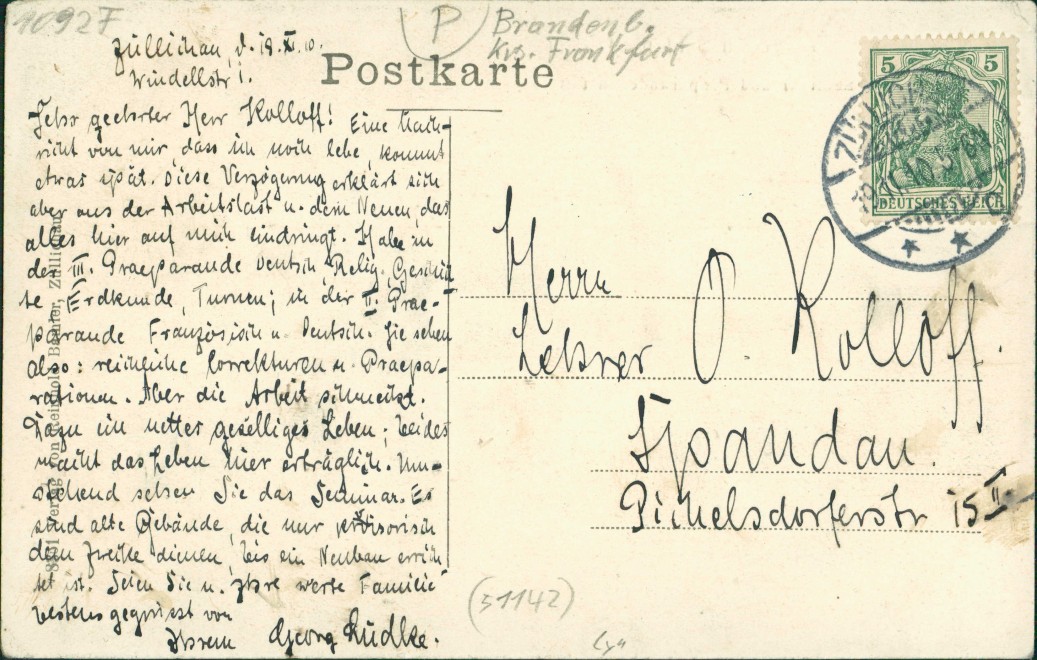 10927
P
Brandenb.
Krs. Frankfurt
Züllichau, d. 19.XI.10.
Postkarte
Sehr geehrter Herr Kolloff! Eine Nach-
richt von mir, dass ich noch lebe, kommt
etwas spät. Diese Verzögerung erklärt sich
aber aus der Arbeitslast u. dem Neuen, das
alles hier auf mich eindringt. Habe in
der III. Praeparande Deutsch, Relig., Geschich
te, Erdkunde, Turnen; in der II. Prae-
parande Französisch u. Deutsch. Sie sehen
also: reichliche Correkturen u. Praepa-
rationen. Aber die Arbeit schmeckt.
Dazu ein nettes geselliges Leben; beides
macht das Leben hier erträglich. Um-
stehend sehen Sie das Seminar. Es
sind alte Gebäude, die nur provisorisch
dem Zwecke dienen, bis ein Neubau errich
tet ist. Seien Sie u. Ihre werte Familie
bestens gegrüsst von
Ihrem Georg Lüdke.
5 5
DEUTSCHES REICH
Herrn
Lehrer O Kolloff.
Spandau.
Pichelsdorferstr 15 II
(51142)
Verlag von Reinhold Bauer, Züllichau